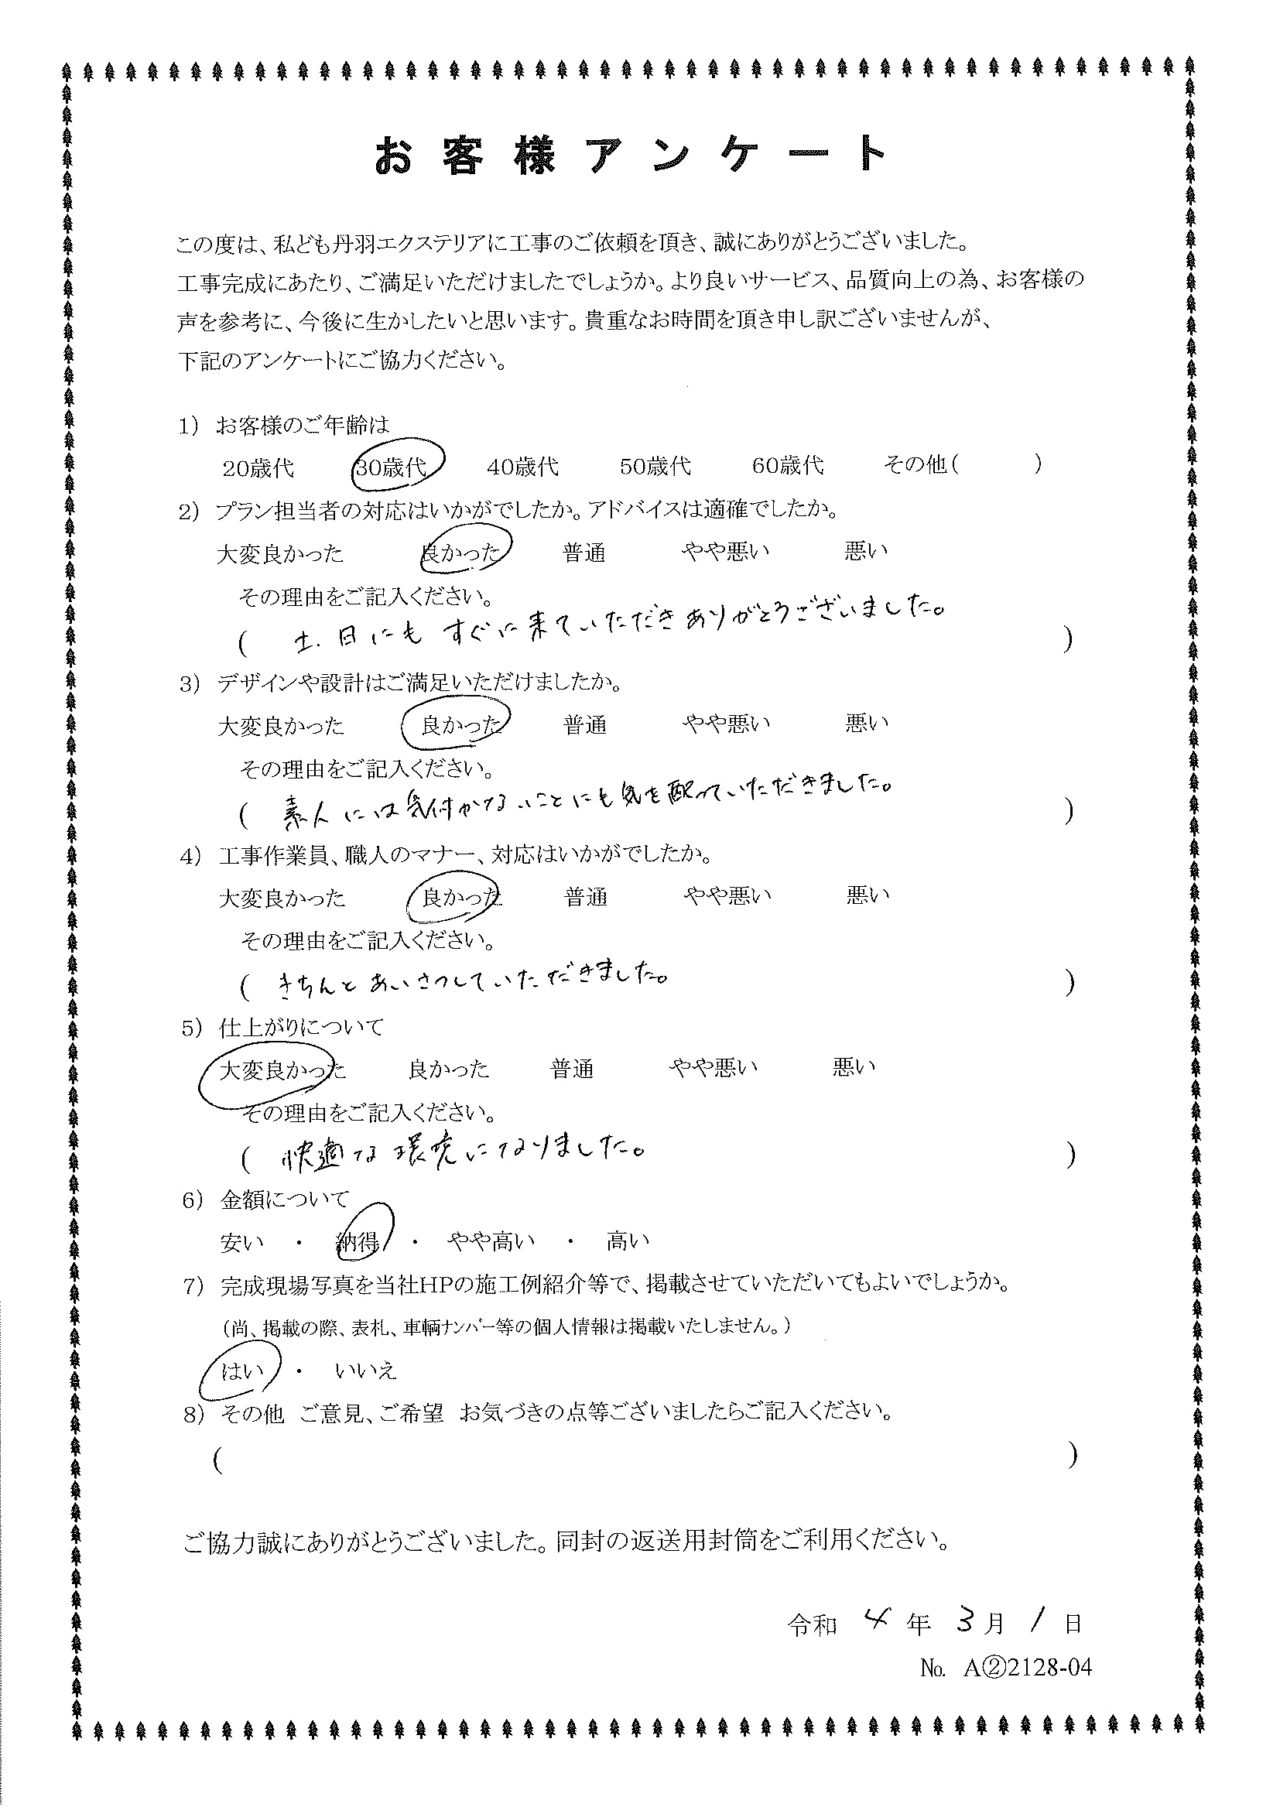 お客様アンケート
この度は、私ども丹羽エクステリアに工事のご依頼を頂き、誠にありがとうございました。
工事完成にあたり、ご満足いただけましたでしょうか。より良いサービス、品質向上の為、お客様の
声を参考に、今後に生かしたいと思います。貴重なお時間を頂き申し訳ございませんが、
下記のアンケートにご協力ください。
1) お客様のご年齢は
20歳代 30歳代 40歳代 50歳代 60歳代 その他( )
2) プラン担当者の対応はいかがでしたか。アドバイスは適確でしたか。
大変良かった 良かった 普通 やや悪い 悪い
その理由をご記入ください。
( 土.日にも すぐに来ていただきありがとうございました。 )
3) デザインや設計はご満足いただけましたか。
大変良かった 良かった 普通 やや悪い 悪い
その理由をご記入ください。
( 素人には気付かないことにも気を配っていただきました。 )
4) 工事作業員、職人のマナー、対応はいかがでしたか。
大変良かった 良かった 普通 やや悪い 悪い
その理由をご記入ください。
( きちんとあいさつしていただきました。 )
5) 仕上がりについて
大変良かった 良かった 普通 やや悪い 悪い
その理由をご記入ください。
( 快適な環境になりました。 )
6) 金額について
安い ・ 納得 ・ やや高い ・ 高い
7) 完成現場写真を当社HPの施工例紹介等で、掲載させていただいてもよいでしょうか。
(尚、掲載の際、表札、車輌ナンバー等の個人情報は掲載いたしません。)
はい ・ いいえ
8) その他 ご意見、ご希望 お気づきの点等ございましたらご記入ください。
( )
ご協力誠にありがとうございました。同封の返送用封筒をご利用ください。
令和 4 年 3 月 1 日
No. A②2128-04